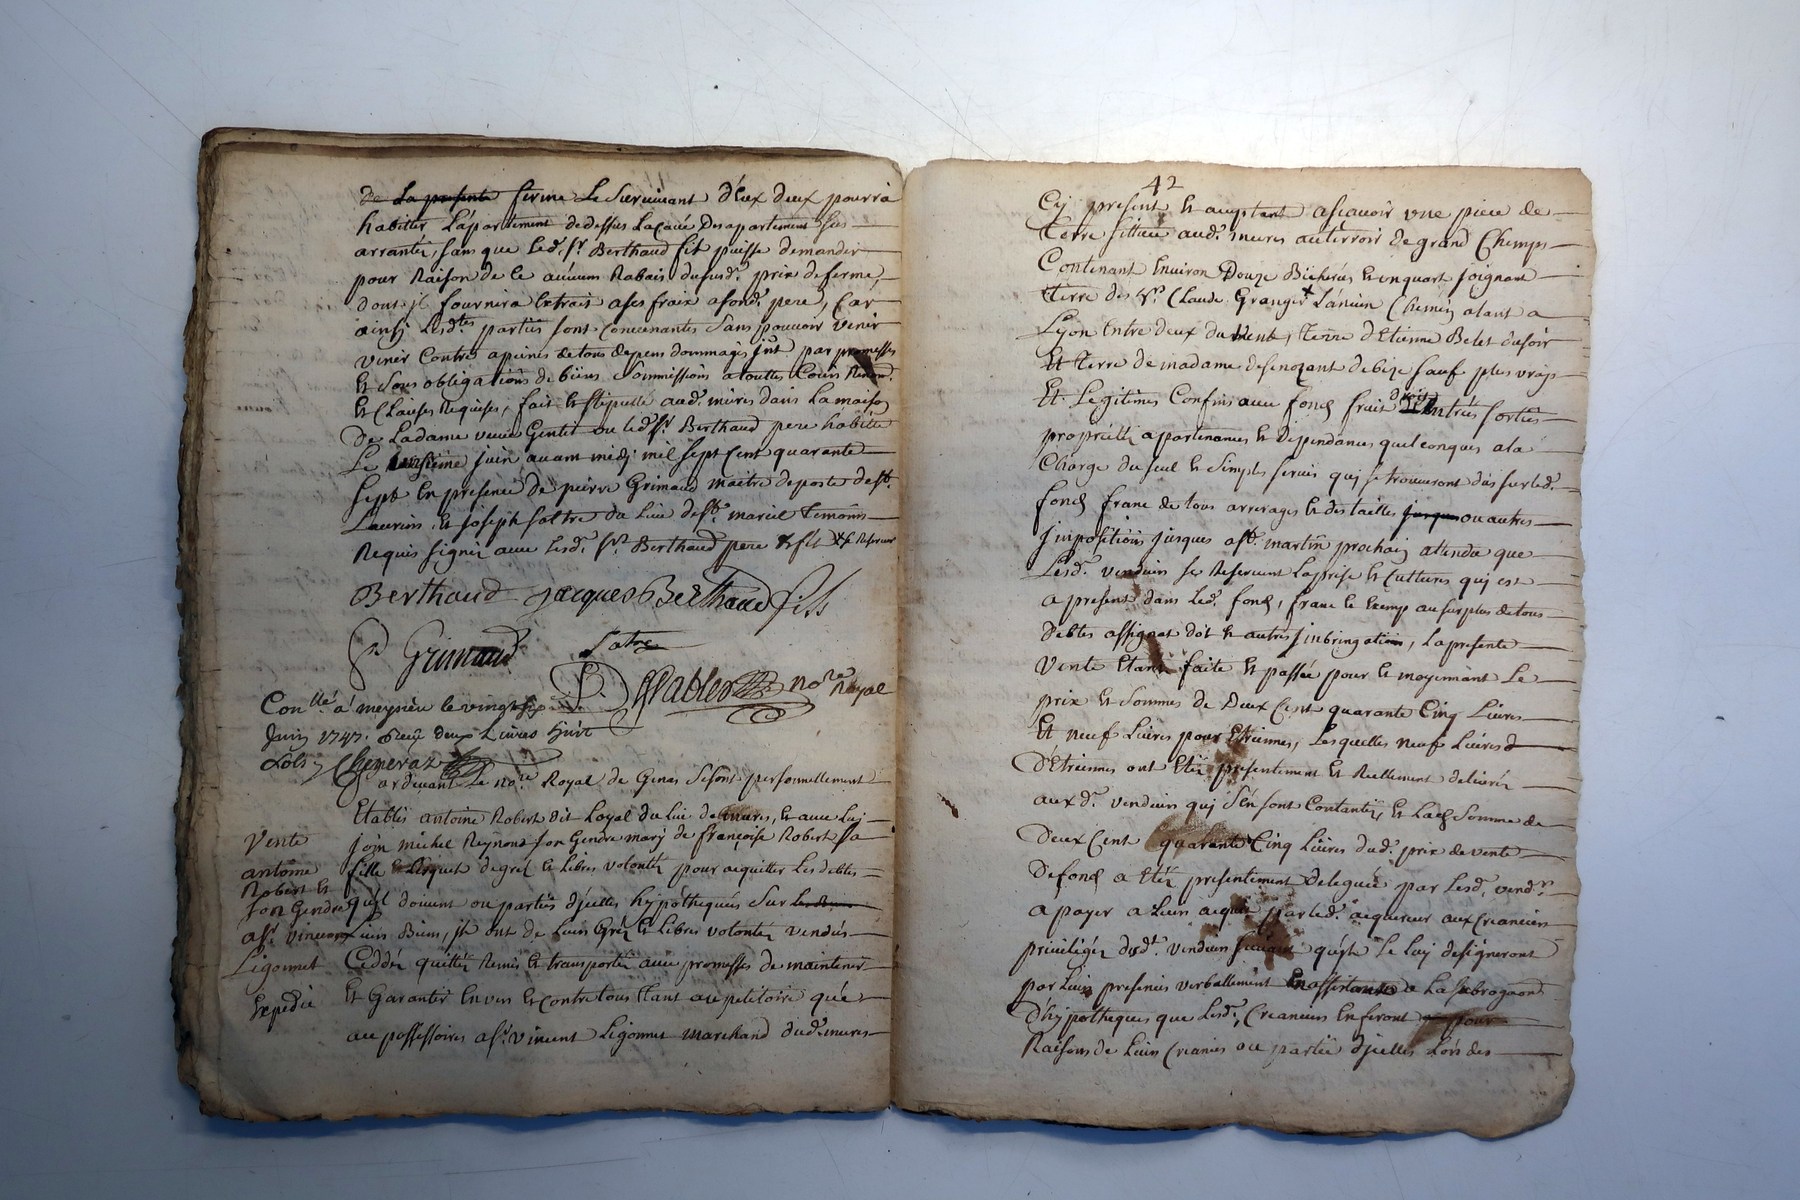 de la presente ferme Le Survivant d'Eux deux pourra
habiter L'apartement dedessus La Cave Des apartement sus
arrantés, sans que led. Sr Berthaud fils puisse demander
pour Raison de Ce aucuns Rabais dususd. prix deferme,
dont jl fournira Extrait ases fraix asond. pere, Car
ainsy Lesdtes parties sont Convenantes Sans pouvoir venir
venir Contre apeines detous depens dommages jnt par promesses
Et Sous obligations de biens Soummissions atouttes Cours
Et Clauses Requises, fait Et stipullé aud. mures dans La maison
De Ladame veuve Gentet ou led. Sr Berthaud pere habitte
Le juin avant midy mil Sept Cent quarante
Sept En presence de pierre Grimaud maitre deposte de St.
Laurens, Et joseph Satre du Lieu de St. marcel temoins
Requis signés avec Lesd. Srs Berthaud pere & fils
Berthaud Jacques Berthaud fils
P. Grimaud Satre
nore Royal
Conllé a meysieu le vingt six
Juin 1747. Reçu deux Livres huit
sols
ardevant Le nore Royal de Genas Sesont personnellement
Etablis antoine Robert dit Loyal du Lieu de mures, Et avec Luy
join michel Reynond son Gendre mary de françoise Robert sa
fille Lesquels degrez Et Libres volontés pour aquitter Les debtes
qu'jl doivent ou parties d'jcelles hypothequés Sur
Leurs Biens, jls ont de Leurs Gréz Et Libres volontés vendus
Ceddés quittés Remis Et transportés avec promesses de maintenir
Et Garantir Envers Et Contre tous tant au petitoire que
au possessoires a Sr. vincent Ligonnet marchand dud. mures
Vente
antoine
Robert Et
son Gendre
a Sr. vincent
Ligonnet
Expedié
42
Cy present Et aceptant ascavoir une piece de
terre sittuée aud. mures auterroir de grand Champs
Contenant Environ Douze Bicherées Et un quart joignant
terre des Sr. Claude Granger Lancien Chemin alant a
Lyon Entre deux du vent, terre d'Etienne Belet du soir
Et terre de madame desenozant de bize sauf plus vrays
Et Legitimes Confins avec fonds fruit droits Entrées sorties
proprietté apartenances Et Dependances quelconques ala
Charge du seul Et simples servis quj se trouveront dus sur led.
fonds franc de tous arrerages Et destailles ou autres
jmpositions jusques a St. martin prochain attendu que
Lesd. vendeurs se Reservent Laprise Et Cultures quj est
a present dans Led. fonds, franc Et Exemp au surplus de tous
debtes assignat dot Et autres jnbringations, La presente
Vente Etant faite Et passée pour Et moyennant Le
prix Et Sommes de Deux Cent quarante Cinq Livres
Et neuf Livres pour Etreinnes, Lesquelles neuf Livres
D'Etreinnes ont Eté presentement Et Reellement delivré
aux d. vendeurs quj s'en sont Contantés, Et Lad. Somme de
Deux Cent quarante Cinq Livres dud. prix de vente
De fonds a Eté presentement Deleguée par Lesd. vendrs
a payer a Leurs aquit par led. aquereur aux Creanciers
privilegiés desd. vendeurs suivant qu'jls Le luy designeront
par Leurs presences verballement a La Subrogaons
d'hypotheques que Lesd. Creanciers En feront pour
Raisons de Leurs Creances ou partie d'jcelles Lors des